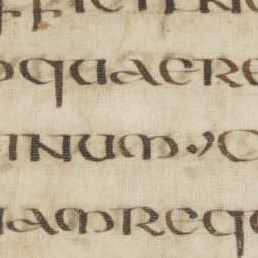 FFICIEN
OQUAERE
INUM·,C
IAMREQU